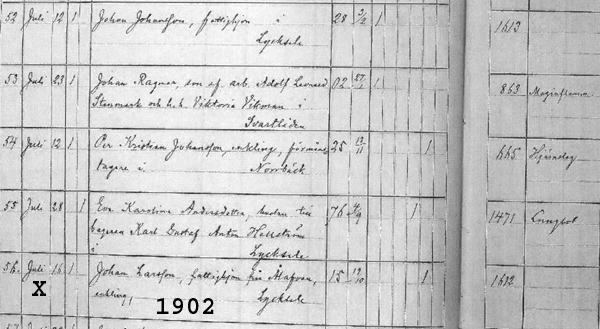 52 Juli 12 1 Johan Johansson, fattighjon i 28 3/2 1 1613
Lycksele
53 Juli 23 1 Johan Ragnar, son af arb. Adolf Leonard 02 27/1 1 863
Stenmark och h.h. Viktoria i
Svartliden
54 Juli 12 1 Per Kristian Johansson, enkling, förmåns- 25 13/11 1 665
tagare i Norrbäck
55 Juli 28 1 Eva Karolina Andersdotter, hustru till 76 1 1471 Lungsot
Karl Gustaf Anton Hellström
i Lycksele
56. Juli 16 1 Johan Larsson, fattighjon från 15 19/10 1 1612
X enkling, Lycksele
1902